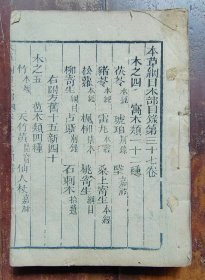 本草綱目木部目錄第三十七卷
木之四 寓木類一十二種
茯苓本經 琥珀別錄 瑿嘉祐
豬苓本經 雷丸本經 桑上寄生本經
松蘿本經 楓柳唐本 桃寄生綱目
柳寄生綱目 占斯別錄 石刺木拾遺
右附方舊十五新四十
木之五 苞木類四種
竹本經 天竹黃 仙人杖嘉祐